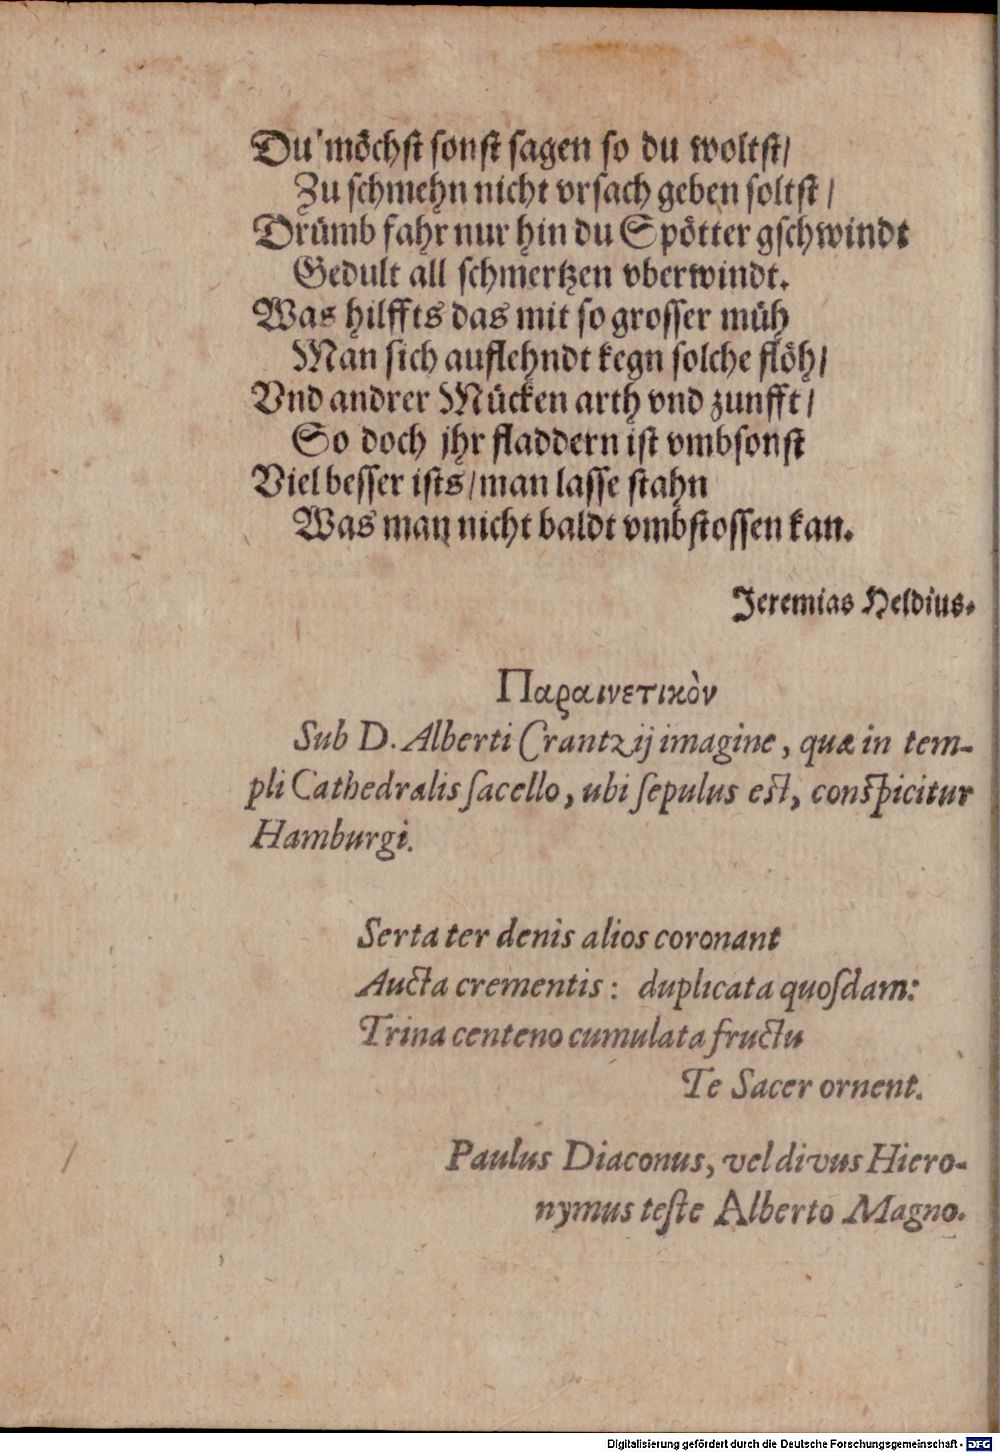 Du möchst sonst sagen so du woltst/
Zu schmehn nicht vrsach geben soltst/
Drümb fahr nur hin du Spötter gschwindt
Gedult all schmertzen vberwindt.
Was hilffts das mit so grosser müh
Man sich auflehndt kegn solche flöh/
Vnd andrer Mücken arth vnd zunfft/
So doch jhr fladdern ist vmbsonst
Viel besser ists/man lasse stahn
Was man nicht baldt vmbstossen kan.
Jeremias Heldius.
Παραινετικὸν
Sub D. Alberti Crantzij imagine, quæ in tem-
pli Cathedralis ſacello, ubi ſepulus eſt, conſpicitur
Hamburgi.
Serta ter denis alios coronant
Aucta crementis: duplicata quoſdam:
Trina centeno cumulata fructu
Te Sacer ornent.
Paulus Diaconus, vel divus Hiero-
nymus teſte Alberto Magno.
Digitalisierung gefördert durch die Deutsche Forschungsgemeinschaft - DFG